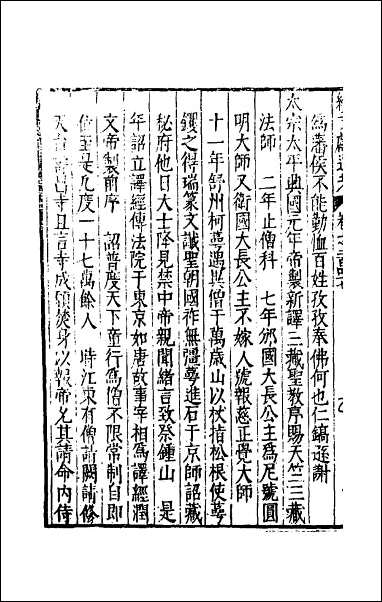 爲藩侯不能勤恤百姓孜孜奉佛何也仁鎬遜謝
太宗太平興國元年帝製新譯三藏聖教序賜天竺三藏
法師　二年止僧科　七年邠國大長公主爲尼號圓
明大師又衛國大長公主不嫁人號報慈正覺大師
十一年舒州柯萼遇異僧于萬歲山以杖指松根使萼
钁之得瑞篆文讖聖朝國祚無疆萼進石于京師詔藏
秘府他日大士降見禁中帝親聞緒言致祭鍾山　是
年詔立譯經傳法院于東京如唐故事宰相爲譯經潤
文帝製前序　詔普度天下童行爲僧不限常制自即
位至是凡度一十七萬餘人　時江東有僧詣闕請修
天台 寺且言寺成願焚身以報帝允其請命内侍